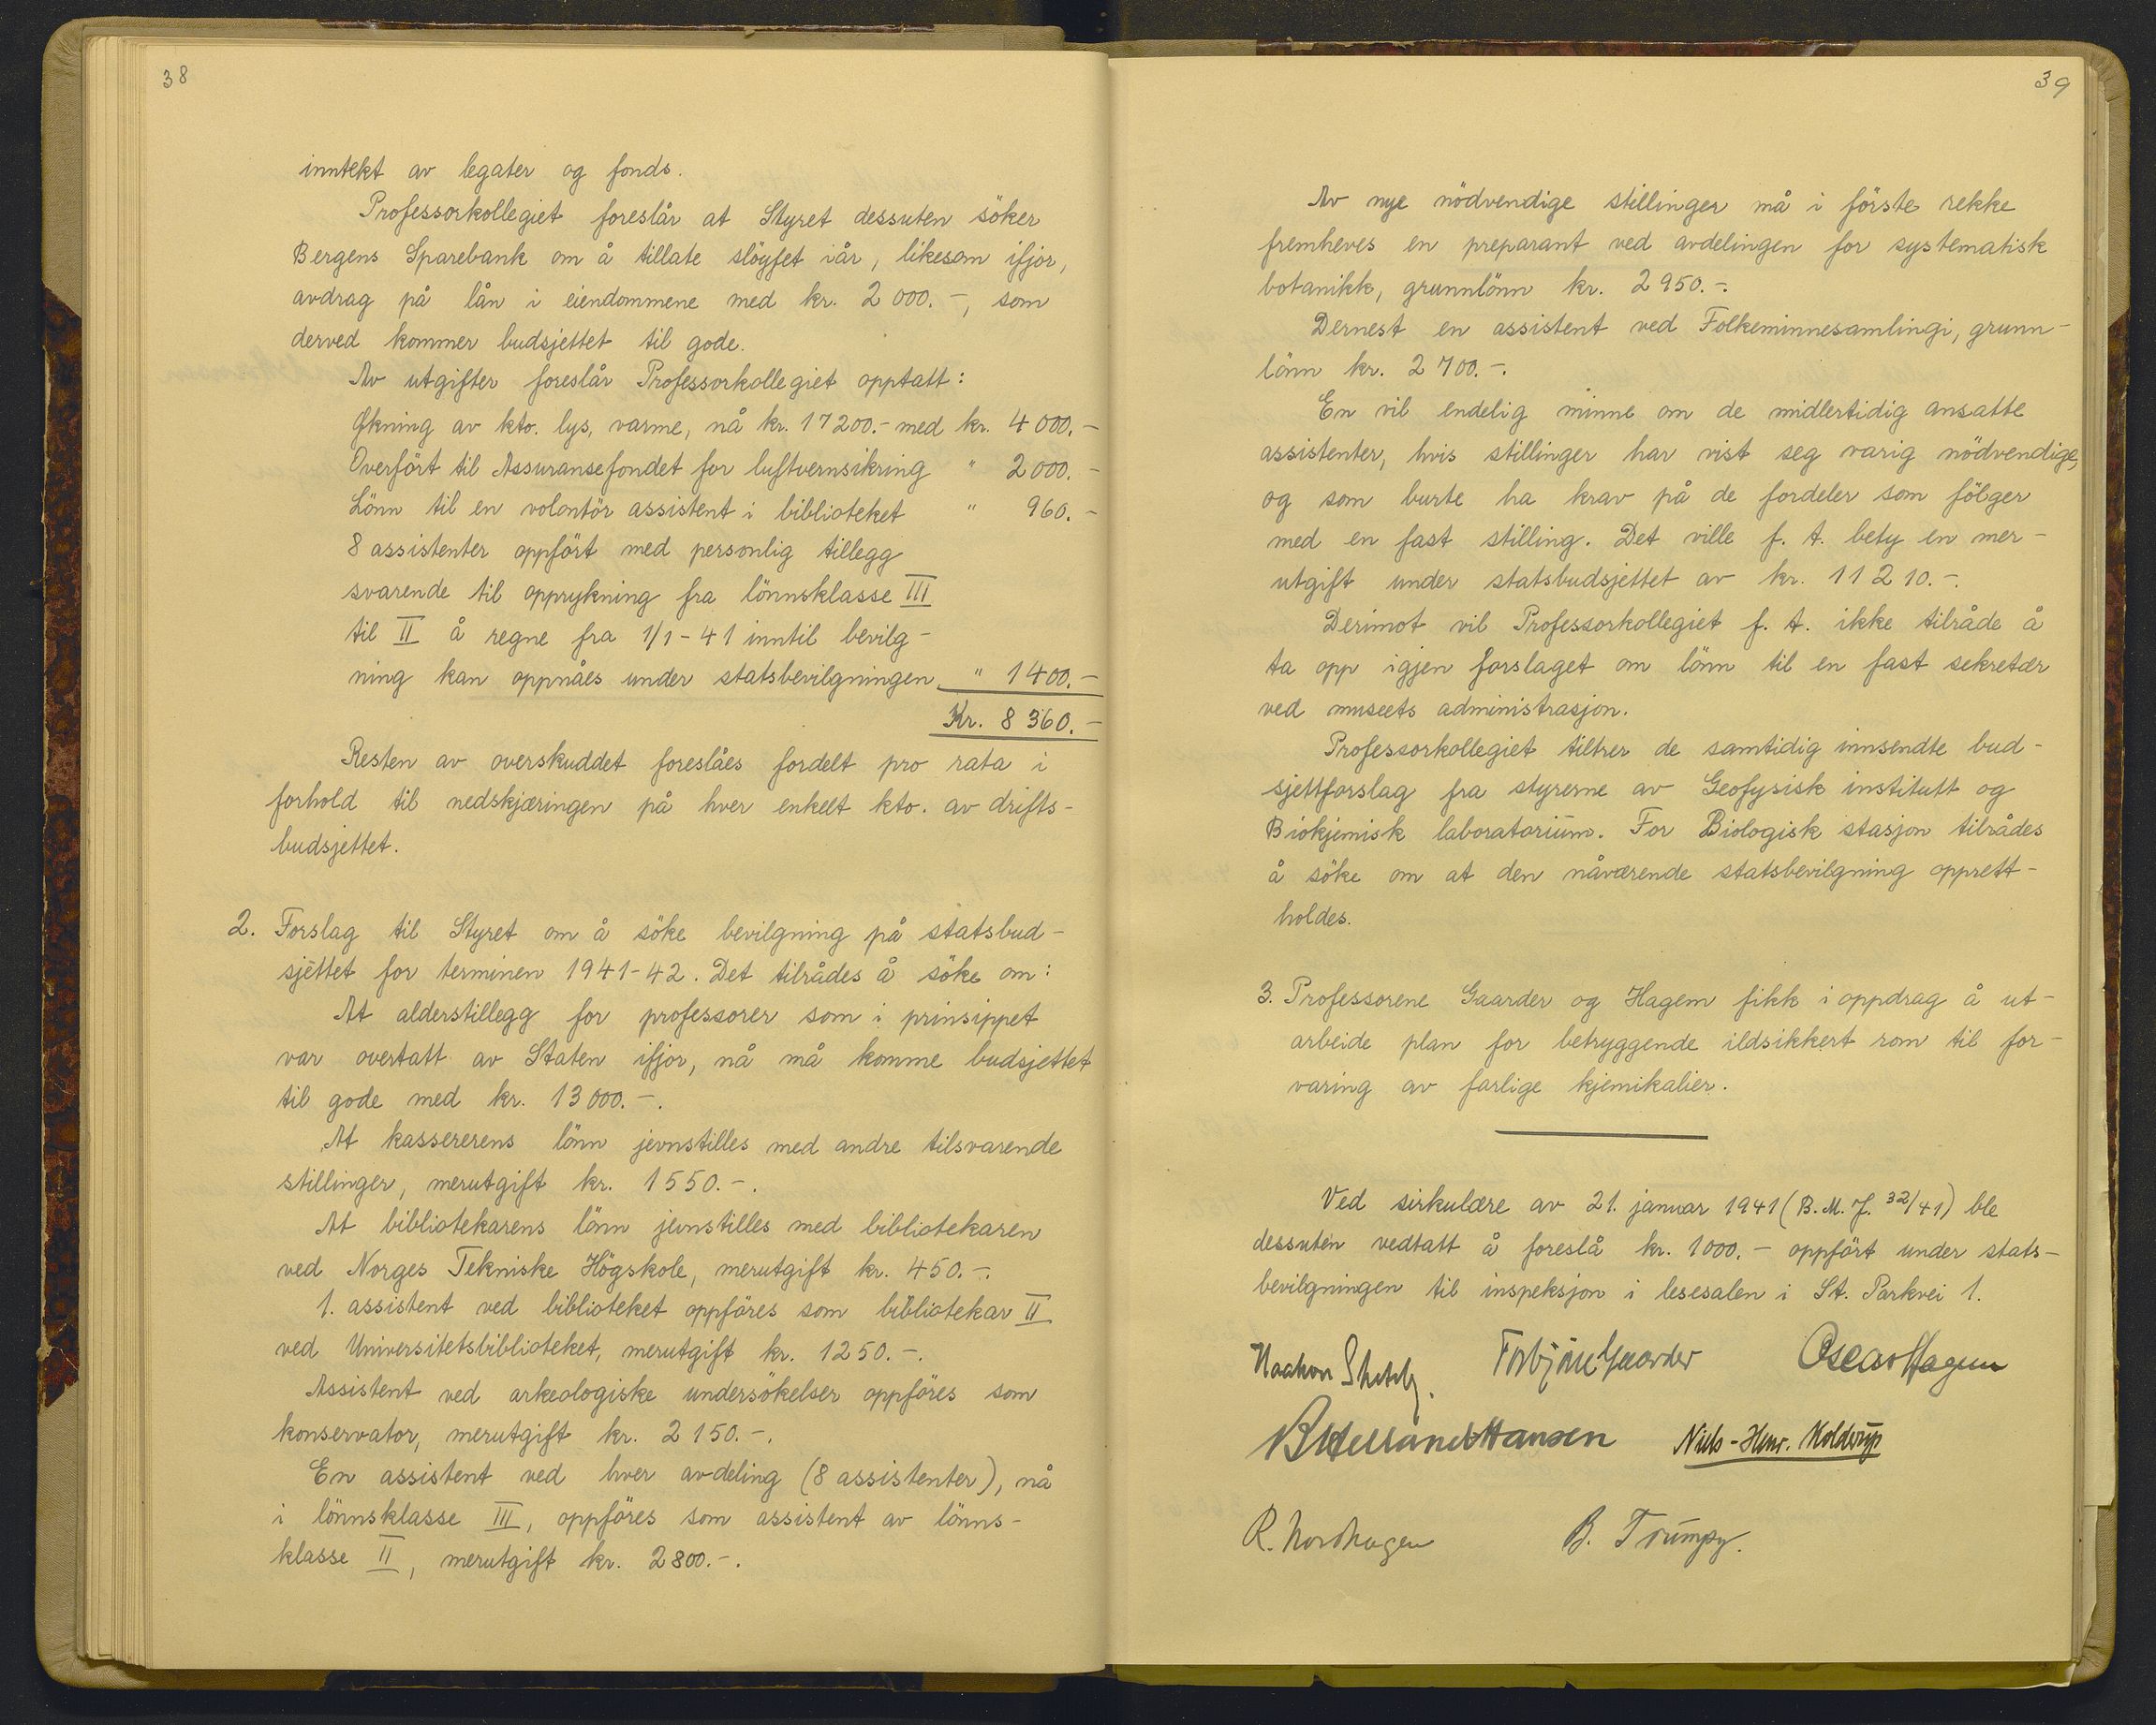 38
inntekt av legater og fonds.
Professorkollegiet foreslår at Styret dessuten söker
Bergens Sparebank om å tillate slöyfet iår, likesom ifjor,
avdrag på lån i eiendommene med kr. 2 000.-, som
derved kommer budsjettet til gode.
Av utgifter foreslår Professorkollegiet opptatt:
Økning av kto. lys, varme, nå kr. 17200.- med kr. 4 000.-
Overfört til Assuransefondet for luftvernsikring " 2 000.-
Lönn til en volontör assistent i biblioteket " 960.-
8 assistenter oppfört med personlig tillegg
svarende til opprykning fra lönnsklasse III
til II å regne fra 1/1-41 inntil bevilg-
ning kan oppnåes under statsbevilgningen " 1 400.-
Kr. 8 360.-
Resten av overskuddet foreslåes fordelt pro rata i
forhold til nedskjæringen på hver enkelt kto. av drifts-
budsjettet.
2. Forslag til Styret om å söke bevilgning på statsbud-
sjettet for terminen 1941-42. Det tilrådes å söke om:
At alderstillegg for professorer som i prinsippet
var overtatt av Staten ifjor, nå må komme budsjettet
til gode med kr. 13 000.-.
At kassererens lönn jevnstilles med andre tilsvarende
stillinger, merutgift kr. 1550.-.
At bibliotekarens lönn jevnstilles med bibliotekaren
ved Norges Tekniske Högskole, merutgift kr. 450.-.
1. assistent ved biblioteket oppföres som bibliotekar II
ved Universitetsbiblioteket, merutgift kr. 1250.-.
Assistent ved arkeologiske undersökelser oppföres som
konservator, merutgift kr. 2 150.-.
En assistent ved hver avdeling (8 assistenter), nå
i lönnsklasse III, oppföres som assistent av lönns-
klasse II, merutgift kr. 2800.-.
39
Av nye nödvendige stillinger må i förste rekke
fremheves en preparant ved avdelingen for systematisk
botanikk, grunnlönn kr. 2 950.-.
Dernest en assistent ved Folkeminnesamlingi, grunn-
lönn kr. 2 700.-.
En vil endelig minne om de midlertidig ansatte
assistenter, hvis stillinger har vist seg varig nödvendige,
og som burte ha krav på de fordeler som fölger
med en fast stilling. Det ville f. t. bety en mer-
utgift under statsbudsjettet av kr. 11 210.-.
Derimot vil Professorkollegiet f. t. ikke tilråde å
ta opp igjen forslaget om lönn til en fast sekretær
ved museets administrasjon.
Professorkollegiet tiltrer de samtidig innsendte bud-
sjettforslag fra styrerne av Geofysisk institutt og
Biokjemisk laboratorium. For Biologisk stasjon tilrådes
å söke om at den nåværende statsbevilgning opprett-
holdes.
3. Professorene Gaarder og Hagem fikk i oppdrag å ut-
arbeide plan for betryggende ildsikkert rom til for-
varing av farlige kjemikalier.
Ved sirkulære av 21. januar 1941 (B.M.J. 32/41) ble
dessuten vedtatt å foreslå kr. 1000.- oppfört under stats-
bevilgningen til inspeksjon i lesesalen i St. Parkvei 1.
Haakon Shetelig. Torbjörn Gaarder Oscar Hagem
B Helland-Hansen Niels-Henr. Kolderup
R. Nordhagen B. Trumpy.